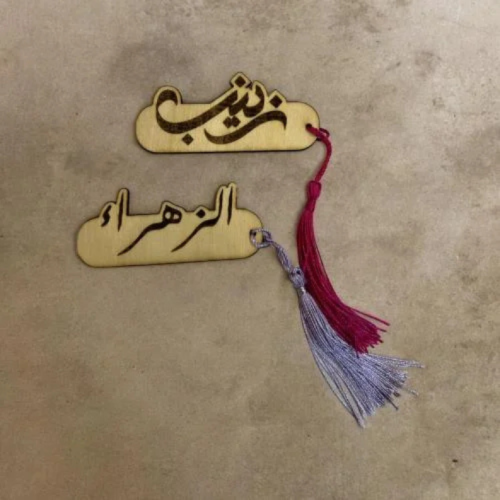 زينب
الزهراء